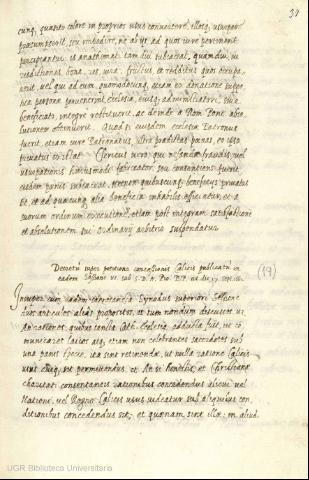 31
cunq, quaesito colore in proprios usus convertere, illosq, usurpare
praesumpserit, seu impedire, ne ab ijs ad quos iure pertinent
percipiantur, is anathemati tamdiu subiaceat, quamdiu
iurisdictiones, bona, res, iura, fructus, et redditus quos occupa
verit, vel qui ad eum quomodocunq, etiam ex donatione suppo
sitae personae pervenerint, ecclesiae, eiusq, administratori, sive
beneficiato integre restituerit, ac deinde a Rom Pont. abso
lutionem obtinuerit. Quod si eiusdem ecclesiae Patronus
fuerit, etiam iure Patronatus ultra praedictas poenas, eo ipso
privatus existat. Clericus vero, qui nefandae fraudis, vel
usurpationis huiusmodi fabricator, seu consentiens fuerit
eisdem poenis subiaceat, necnon quibuscunq, beneficijs privatus
sit et ad quaecunq, alia beneficia inhabilis efficiatur, et a
suorum ordinum executione, etiam post integram satisfactionem
et absolutionem sui Ordinarij arbitrio suspendatur.
Decretu super petitione concessionis Calicis publicatu in
eadem Sessione
(19)
Insuper cum eadem sacrosancta Synodus superiori Sessione
duos articulos alias propositos, et tum nondum discussos vz.
An rationes, quibus sancta Cath. Ecclesia adducta fuit, ut co
municaret laicos atq, etiam non celebrantes sacerdotes sub
una panis specie, ita sint retinendae, ut nulla ratione Calicis
usus cuiq, sit permittendus. et An si honestis, et Christianae
charitati consentaneis rationibus concedendus alicui vel
Nationi, vel Regno Calicis usus videatur sub aliquibus con
ditionibus concedendus sit, et quaenam sint illae: in aliud
UGR Biblioteca Universitaria